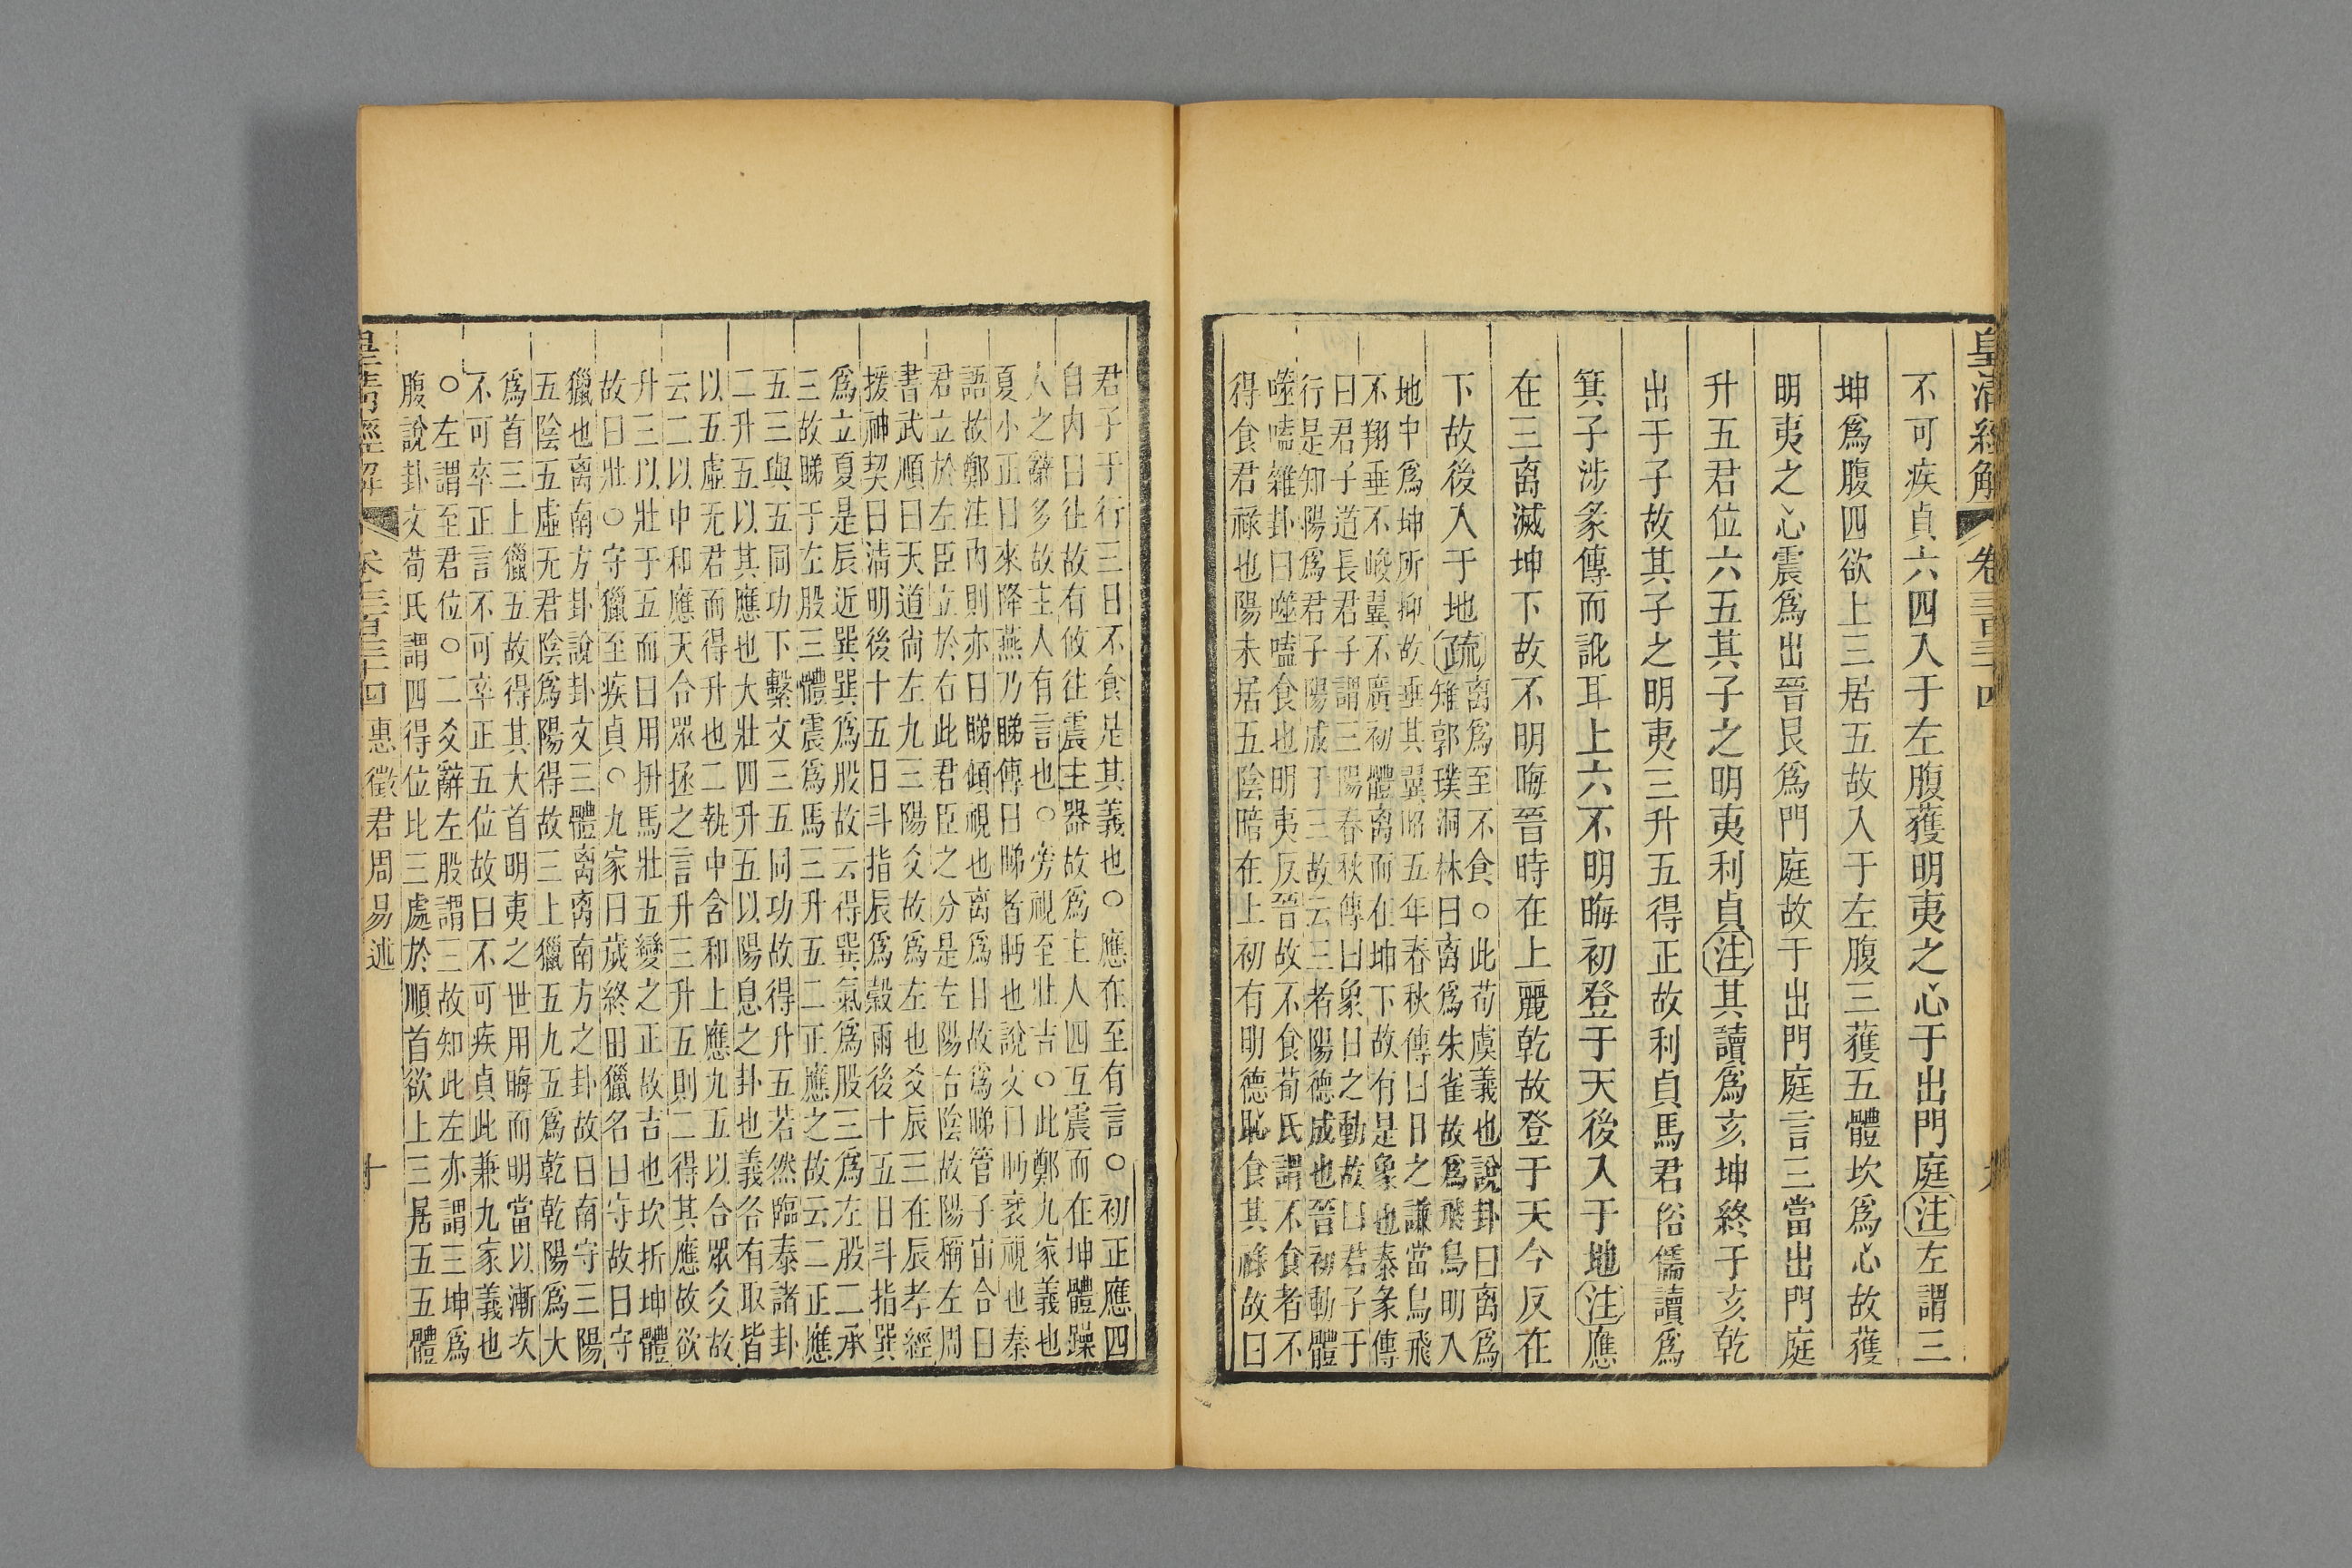 皇清經解
卷三百三十四
九
不可疾貞六四入于左腹獲明夷之心于出門庭注左謂三
坤爲腹四欲上三居五故入于左腹三獲五體坎爲心故獲
明夷之心震爲出晉艮爲門庭故于出門庭言三當出門庭
升五君位六五其子之明夷利貞注其讀爲亥坤終于亥乾
出于子故其子之明夷三升五得正故利貞馬君俗儒讀爲
箕子涉彖傳而訛耳上六不明晦初登于天後入于地注應
在三离滅坤下故不明晦晉時在上麗乾故登于天今反在
下故後入于地疏
离爲至不食○此荀虞義也說卦曰离爲
雉郭璞洞林曰离爲朱雀故爲飛鳥明入
地中爲坤所抑故垂其翼昭五年春秋傳曰日之謙當鳥飛
不翔垂不峻翼不廣初體离而在坤下故有是象也泰彖傳
曰君子道長君子謂三陽春秋傳曰象日之動故曰君子于
行是知陽爲君子陽成于三故云三者陽德成也晉初動體
噬嗑雜卦曰噬嗑食也明夷反晉故不食荀氏謂不食者不
得食君祿也陽未居五陰暗在上初有明德恥食其祿故曰
君子于行三日不食是其義也○應在至有言○初正應四
自內曰往故有攸往震主器故爲主人四互震而在坤體躁
人之辭多故主人有言也○旁視至壯吉○此鄭九家義也
夏小正曰來降燕乃睇傳曰睇者眄也說文曰眄衺視也秦
語故鄭注內則亦曰睇傾視也离爲目故爲睇管子宙合曰
君立於左臣立於右此君臣之分是左陽右陰故陽稱左周
書武順曰天道尙左九三陽爻故爲左也爻辰三在辰孝經
援神契曰清明後十五日斗指辰爲榖雨後十五日斗指巽
爲立夏是辰近巽巽爲股故云得巽氣爲股三爲左股二承
三故睇于左股三體震爲馬三升五二正應之故云二正應
五三與五同功下繫文三五同功故得升五若然臨泰諸卦
二升五以其應也大壯四升五以陽息之卦也義各有取皆
以五虛无君而得升也二執中含和上應九五以合眾爻故
云二以中和應天合眾拯之言升三升五則二得其應故欲
升三以壯于五而曰用拚馬壯五變之正故吉也坎折坤體
故曰壯○守獵至疾貞○九家曰歲終田獵名曰守故曰守
獵也离南方卦說卦文三體离离南方之卦故曰南守三陽
五陰五虛无君陰爲陽得故三上獵五九五爲乾乾陽爲大
爲首三上獵五故得其大首明夷之世用晦而明當以漸次
不可卒正言不可卒正五位故曰不可疾貞此兼九家義也
○左謂至君位○二爻辭左股謂三故知此左亦謂三坤爲
腹說卦文荀氏謂四得位比三處於順首欲上三居五五體
皇清經解
卷三百三十四惠徵君周易述
十